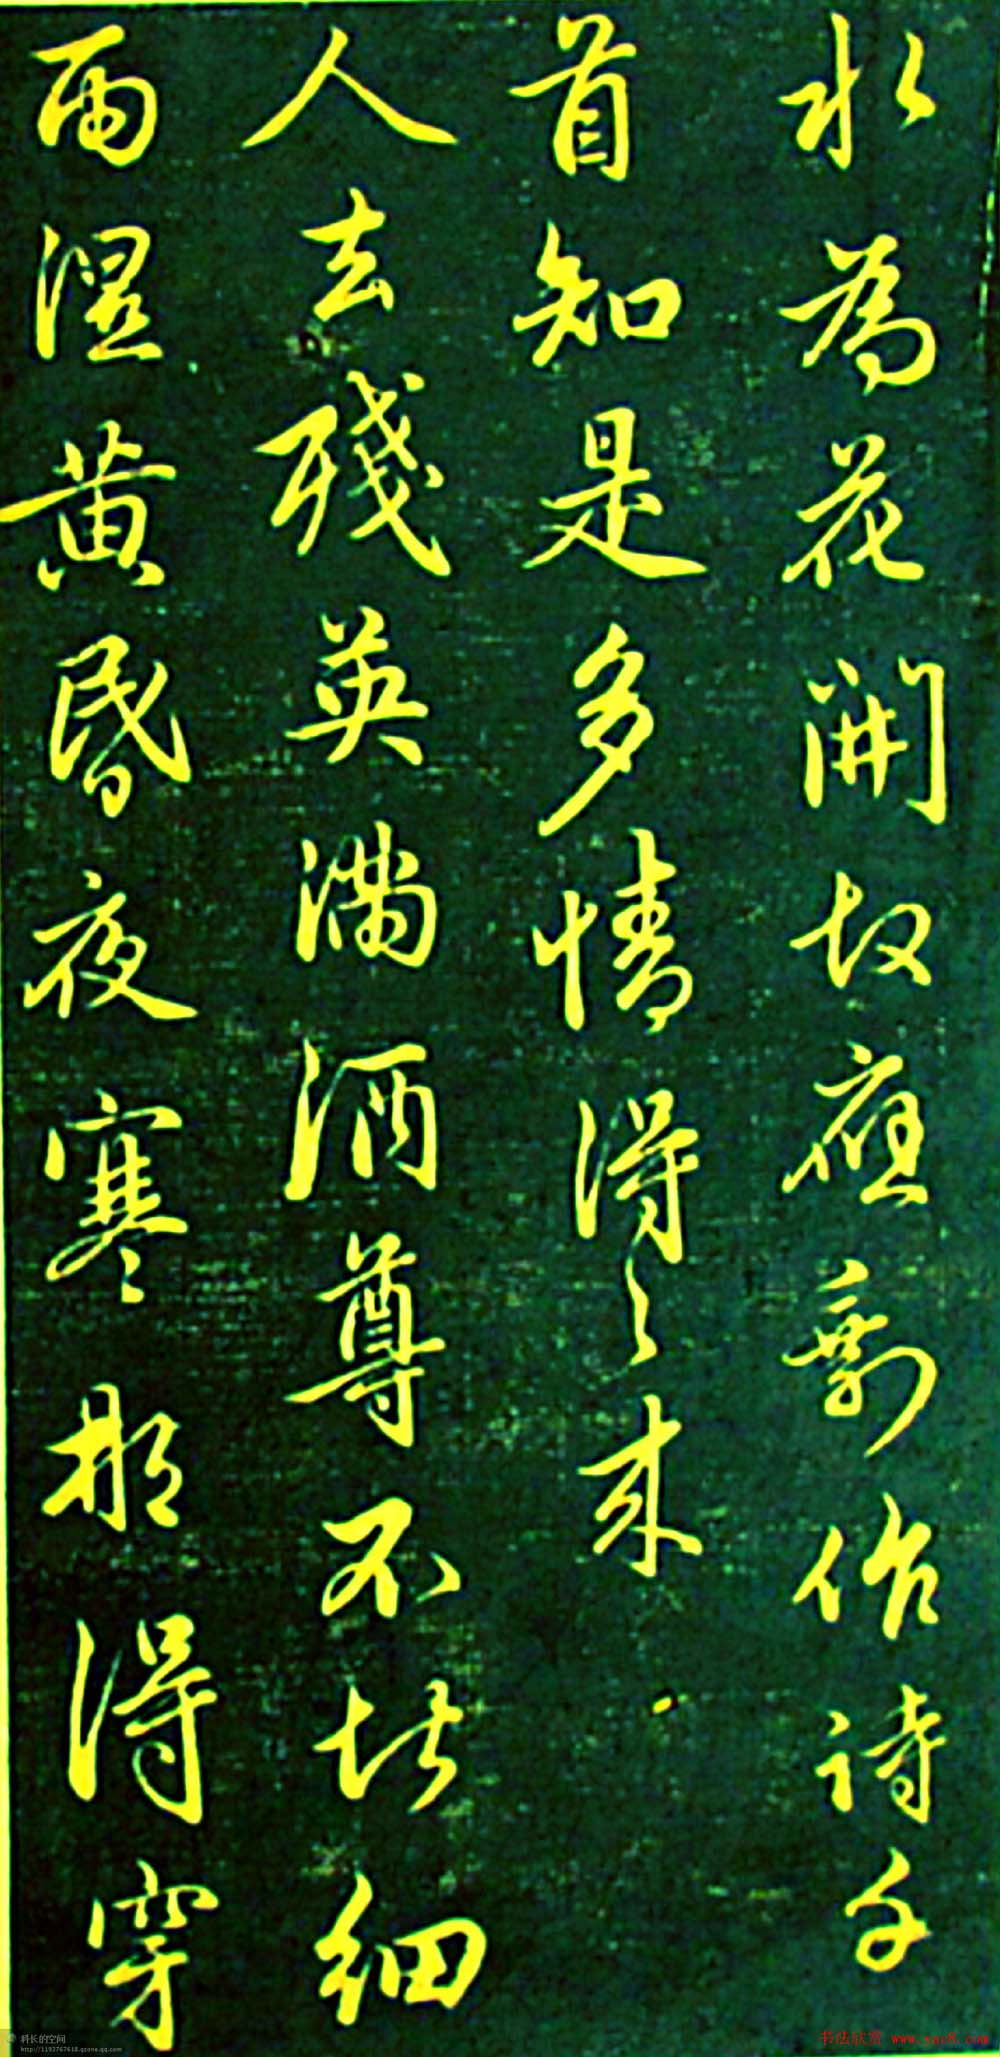 水為花開故應剩作詩千
首知是多情得々來
人去殘英滿酒尊不堪細
雨湿黃昏夜寒那得穿
科长的空间
http://1193767618.qzone.qq.com
书法欣赏 www.yac8.com